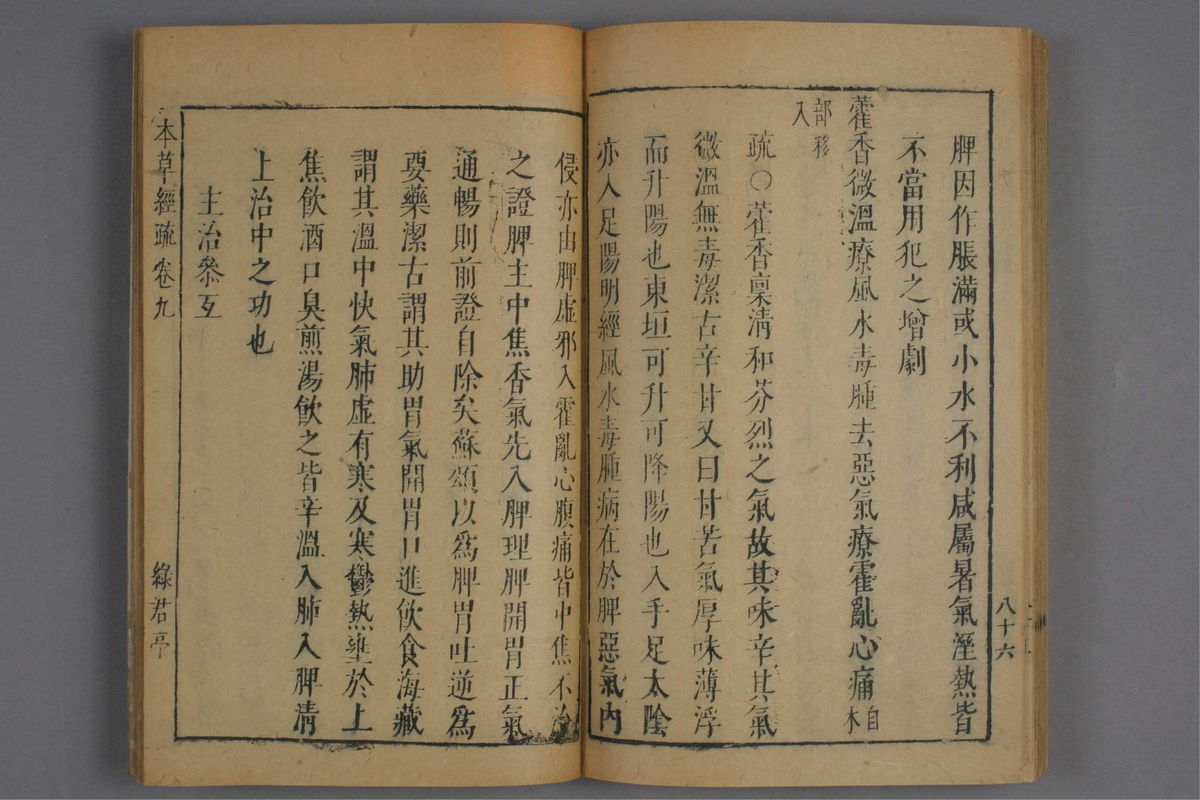 脾因作脹滿或小水不利咸屬暑氣溼熱皆
不當用犯之增劇
藿香微溫療風水毒腫去惡氣療霍亂心痛自木
部移入
疏○藿香稟清和芬烈之氣故其味辛其氣
微溫無毒潔古辛甘又曰甘苦氣厚味薄浮
而升陽也東垣可升可降陽也入手足太陰
亦入足陽明經風水毒腫病在於脾惡氣內
八十六
侵亦由脾虛邪入霍亂心腹痛皆中焦不治
之證脾主中焦香氣先入脾理脾開胃正氣
通暢則前證自除矣蘇頌以爲脾胃吐逆爲
要藥潔古謂其助胃氣開胃口進飲食海藏
謂其溫中快氣肺虛有寒及寒鬱熱壅於上
焦飲酒口臭煎湯飲之皆辛溫入肺入脾清
上治中之功也
主治參互
本草經疏 卷九 綠君亭